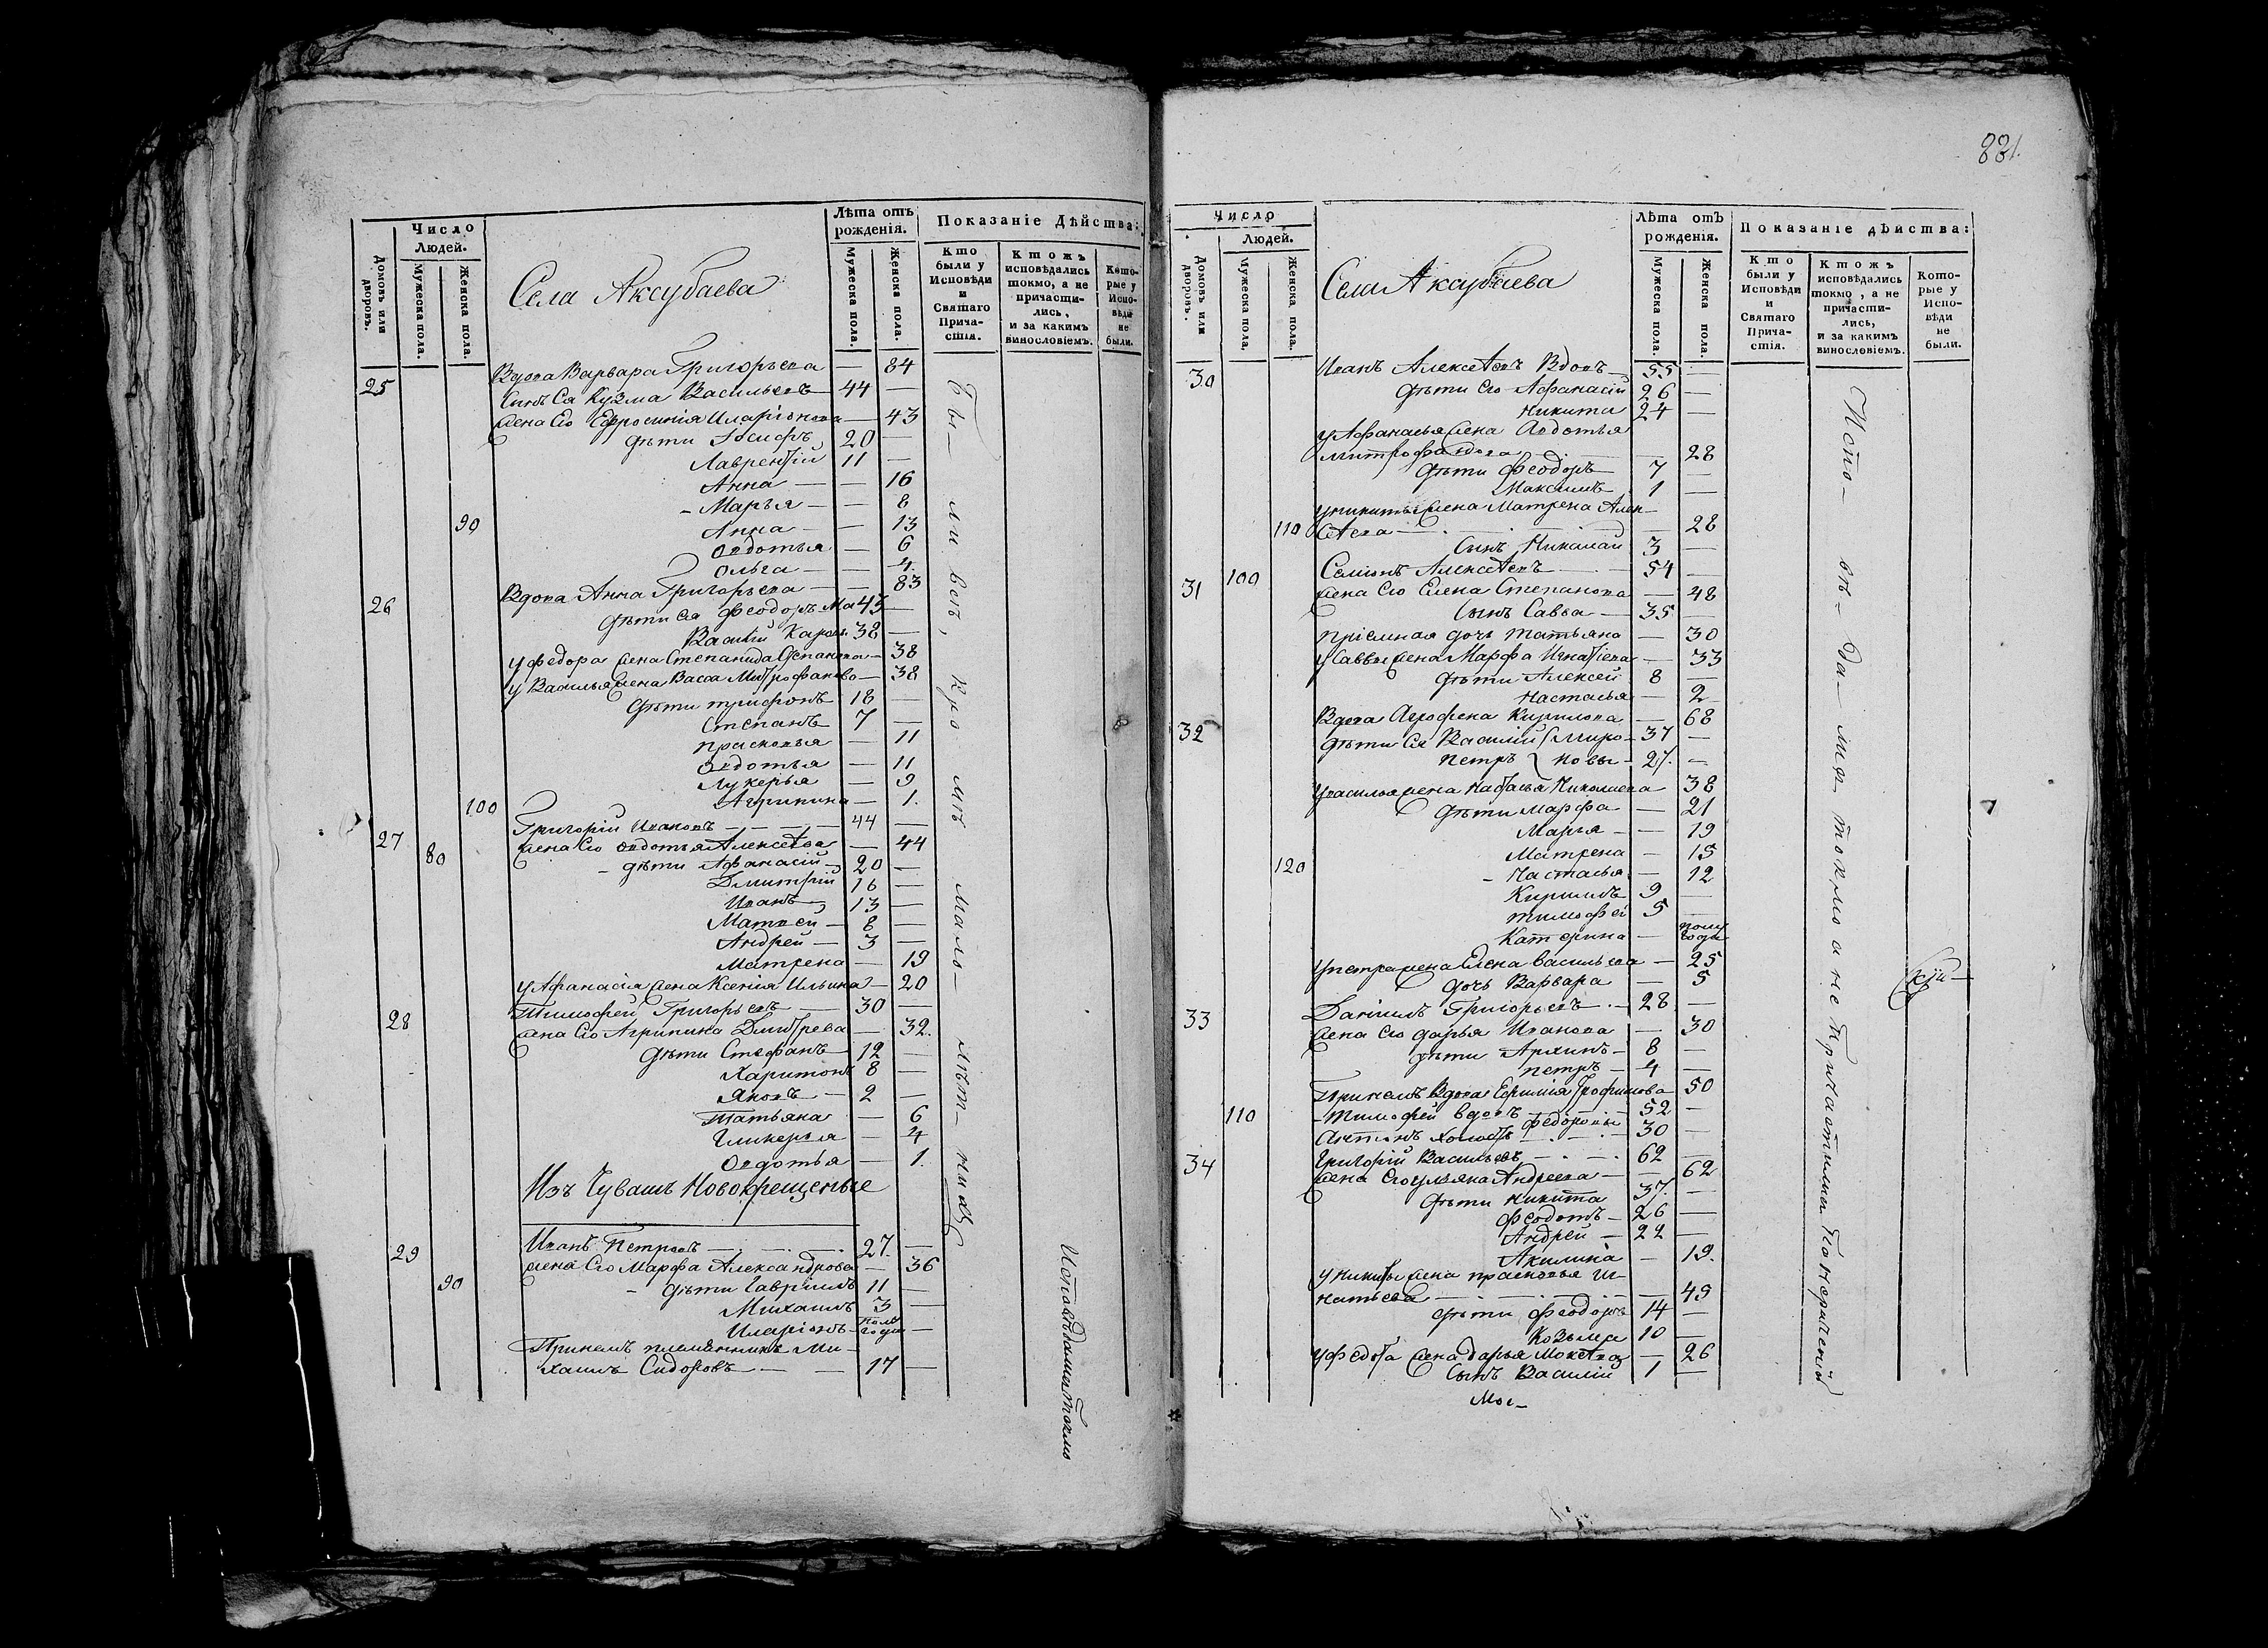 Число
Людей.
Домовъ или дворовъ.
Мужеска пола.
Женска пола.
Села Аксубаева
Лѣта отъ рожденія.
Мужеска пола.
Женска пола.
Показаніе Дѣйства:
Кто были у Исповѣди и Святаго Прича-стія.
Ктожъ исповѣдались токмо, а не причасти-лись, и за какимъ винословіемъ.
Кото-рые у Испо-вѣди не были.
25 Вдова Варвара Григорьева — 84
Сынъ Ея Кузма Васильевъ 44 —
жена Его Ефросинія Иларіонова — 43
дѣти Іосифъ 20 —
Лаврентій 11 —
Анна — 16
Марья — 8
90 Анна — 13
Овдотья — 6
Ольга — 4
26 Вдова Анна Григорьева — 83
дѣти Ея Феодоръ Ма 43 —
Василій Каровы 38 —
у Федора жена Степанида Степанова — 38
у Василья жена Васса Митрофанова — 38
дѣти Трифонъ 18 —
Степанъ 7 —
Прасковья — 11
Овдотья — 11
Лукерья — 9
100 Агрипина — 1.
27 Григорій Ивановъ 44 —
80 жена Его Овдотья Алексѣева — 44
дѣти Афанасій 20 —
Дмитрій 16 —
Иванъ 13 —
Матвей 8 —
Андрей 3 —
Матрена — 19
у Афанасія жена Ксенія Ильина — 20
28 Тимофей Григорьевъ 30 —
жена Его Агрипина Дмитрева — 32.
дѣти Стефанъ 12 —
Харитонъ 8 —
Яковъ 2 —
Татьяна — 6
Гликерья — 4
Овдотья — 1.
Изъ Чувашъ Новокрещеные
29 Иванъ Петровъ 27. —
жена Его Марфа Александрова — 36
90 дѣти Гавріилъ 11 —
Михаилъ 3 —
Иларіонъ полъ года —
Пріемъ племянникъ Ми-
хаилъ Сидоровъ 17 —
Бы- ли всѣ, кро мѣ мало- лѣт- нихъ
Исповѣдались токмо
331.
Число
Людей.
Домовъ или дворовъ.
Мужеска пола.
Женска пола.
Села Аксубаева
Лѣта отъ рожденія.
Мужеска пола.
Женска пола.
Показаніе дѣйства:
Кто были у Исповѣди и Святаго Прича-стія.
Ктожъ исповѣдались токмо, а не причасти-лись, и за какимъ винословіемъ.
Кото-рые у Испо-вѣди не были.
30 Иванъ Алексѣевъ Вдовъ 55 —
дѣти Его Афанасій 26 —
Никита 24 —
у Афанасья жена Авдотья
Митрофанова — 28
дѣти Феодоръ 7 —
Максимъ 1 —
у Никиты жена Матрена Алек-
110 сѣева — 28
Сынъ Николай 3 —
31 100 Семіонъ Алексѣевъ 54 —
жена Его Елена Степанова — 48
Сынъ Савва 35 —
Пріемная дочь Татьяна — 30
у Саввы жена Марфа Игнатіева — 33
дѣти Алексей 8 —
Настасья — 2
32 Вдова Агрофена Кирилова — 68
дѣти Ея Василій Миро- 37 —
Петръ новы 27. —
у Василья жена Настасья Николаева 38
дѣти Марфа — 21
Марья — 19
Матрена — 15
120 Настасья — 12
Кирилъ 9 —
Тимофей 5 —
Катерина — полъ года
у Петра жена Елена Васильева — 25
дочь Варвара — 5
33 Даніилъ Григорьевъ 28 —
жена Его Дарья Иванова — 30
дѣти Архипъ 8 —
Петръ 4 —
Пріемъ Вдова Ефимія Трофимова 50
110 Тимофей вдовъ 52 —
Антонъ холостъ Федоровы 30 —
34 Григорій Васильевъ 62 —
жена Его Ульяна Андреева — 62
дѣти Никита 37. —
Феодотъ 26 —
Андрей 22 —
Акилина — 19.
у Никиты жена Прасковья Иг-
натьева — 49
дѣти Феодоръ 14 —
Козьма 10 —
у Федота жена Дарья Мокѣева — 26
Сынъ Василій 1 —
Мос-
Испо- вѣ- да- лись токмо а не Причастились По нерачению